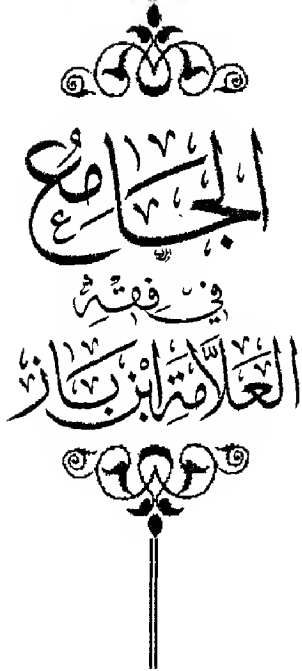 الجَامِعُ
في فِقْهِ
العَلَّامَةِ ابْنِ بَاز